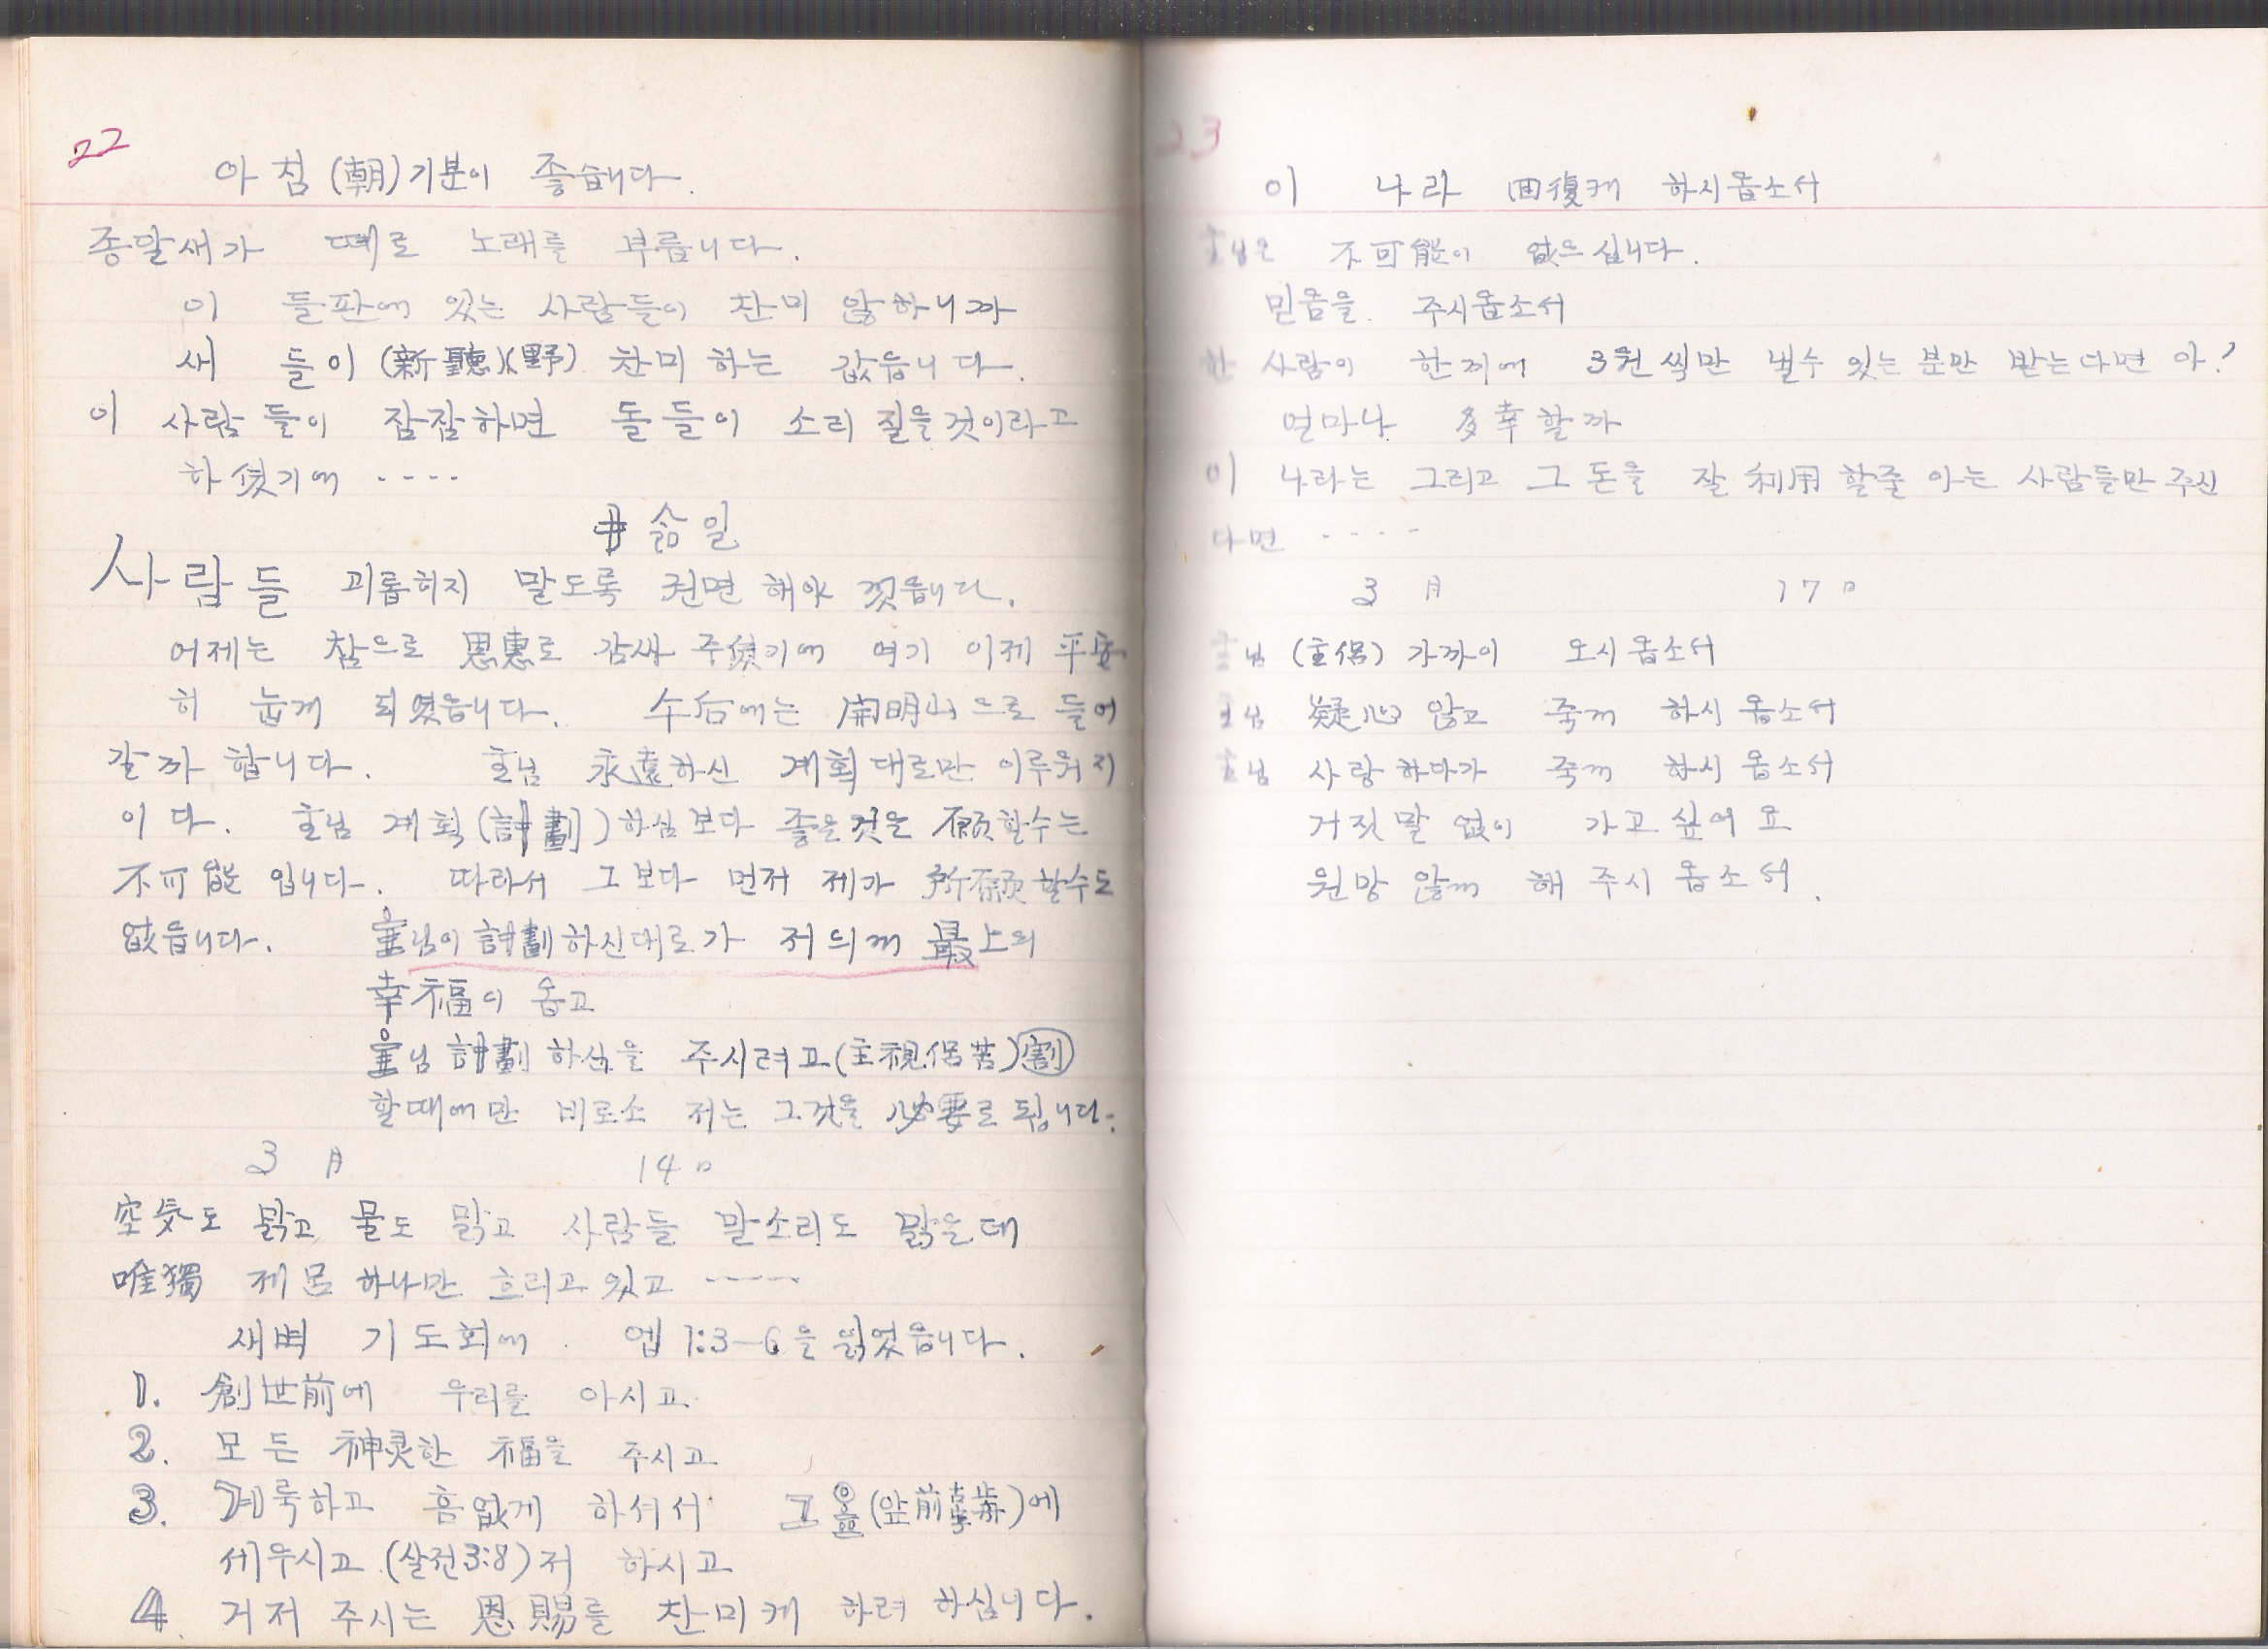 22
아침 (朝) 기분이 좋습니다.
종달새가 떼로 노래를 부릅니다.
이 들판에 있는 사람들이 찬미 않하니까
새 들이 (新聽)(野) 찬미 하는 값읍니다.
이 사람들이 잠잠하면 돌들이 소리 질을것이라고
하셨기에 ----
일
사람들 괴롭히지 말도록 권면 해야 겠읍니다.
어제는 참으로 恩惠로 감싸 주셨기에 여기 이제 平安
히 눕게 되였읍니다. 午后에는 開明山으로 들어
갈까 합니다. 主님 永遠하신 계획대로만 이루워지
이다. 主님 계획(計劃)하심보다 좋은것을 願할수는
不可能 입니다. 따라서 그보다 먼저 제가 所願할수도
없읍니다. 主님이 計劃하신대로가 저의께 最上의
幸福이 옵고
主님 計劃 하심을 주시려고 (主視侶苦) 割
할때에만 비로소 저는 그것을 必要로 됩니다.
3 月 14日
空気도 맑고 물도 맑고 사람들 말소리도 맑은데
唯獨 제 몸 하나만 흐리고 있고 -----
새벽 기도회에 엡 1:3-6을 읽었읍니다.
1. 創世前에 우리를 아시고
2. 모든 神灵한 福을 주시고
3. 거룩하고 흠없게 하셔서 그 (앞前)에
세우시고 (살전3:8)저 하시고
4. 거저 주시는 恩賜를 찬미케 하려 하십니다.
23
이 나라 回復케 하시옵소서
主님은 不可能이 없으십니다.
믿음을 주시옵소서
한 사람이 한끼에 3원씩만 낼수 있는 분만 받는다면 아!
얼마나 多幸할까
이 나라는 그리고 그 돈을 잘 利用할줄 아는 사람들만 주신
다면 ----
3 月 17日
主님 (主侶) 가까이 오시옵소서
主님 疑心 않고 죽께 하시옵소서
主님 사랑하다가 죽께 하시옵소서
거짓말 없이 가고 싶어요
원망 않께 해 주시옵소서.